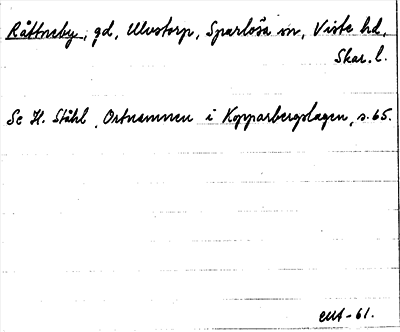 Råttneby, gd, Ulvstorp, Sparlösa sn, Viste hd,
Skar. l.
Se H. Ståhl, Ortnamnen i Kopparbergslagen, s. 65.
-61.